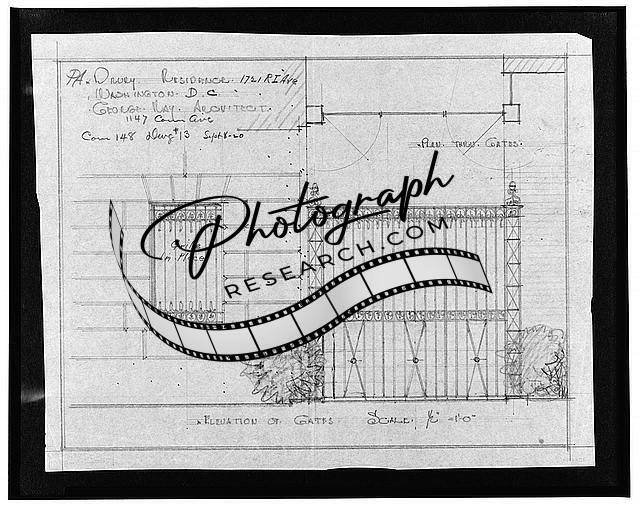 P.A. Drury Residence. 1721 R.I. Ave
Washington D.C.
George Ray. Architect.
1147 Conn Ave
Com 148 Dwg #13 Sept-8-20
Plan Thru Gates.
Photograph
RESEARCH.COM
Elevation of Gates Scale, ½" = 1'-0"